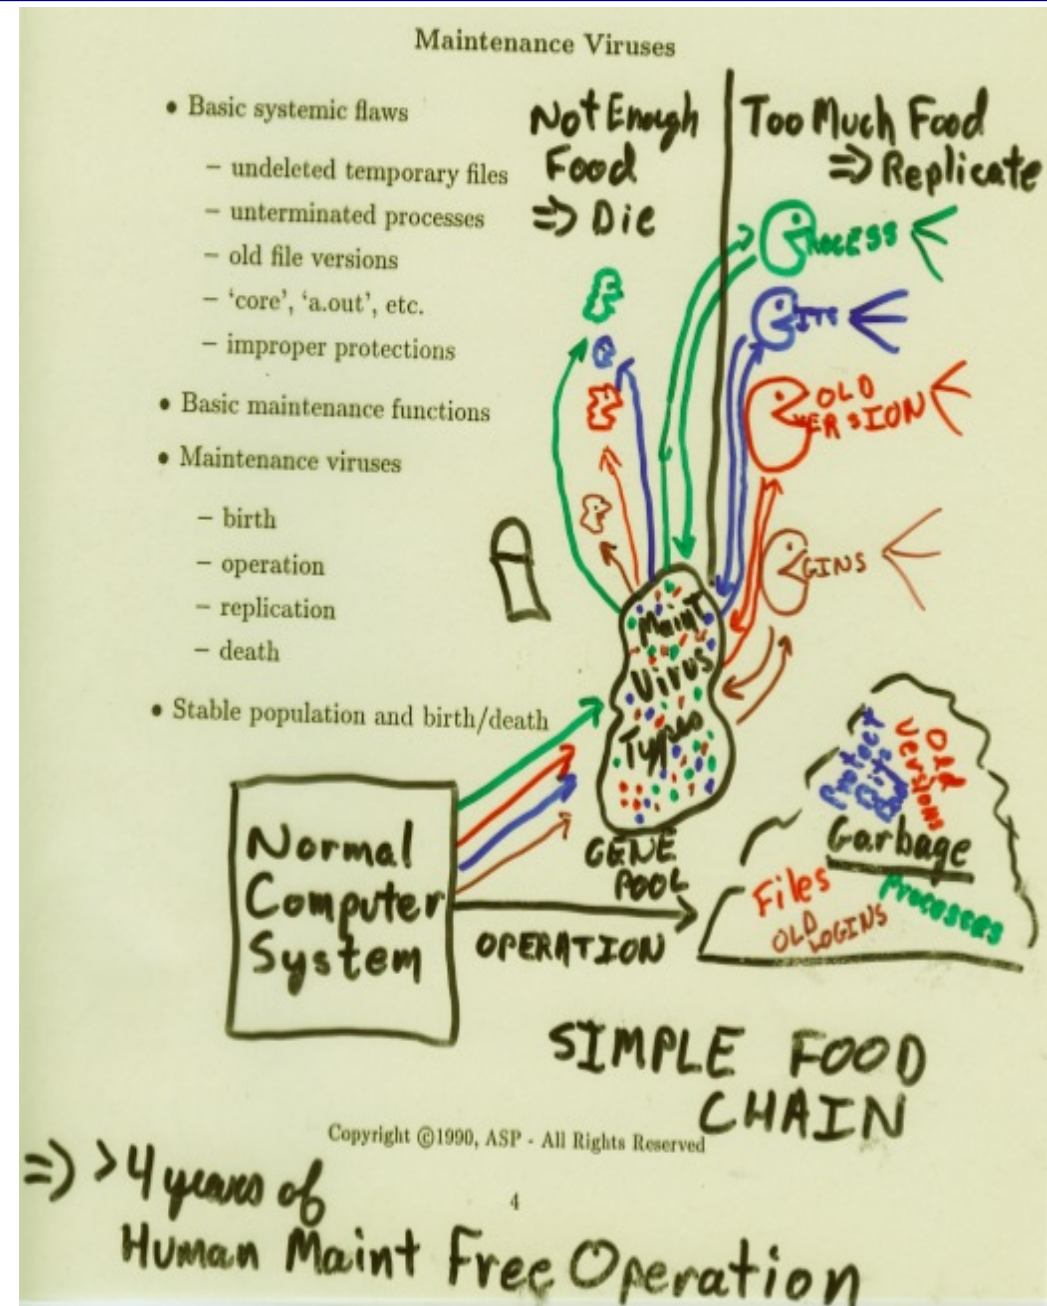 Maintenance Viruses
• Basic systemic flaws
– undeleted temporary files
– unterminated processes
– old file versions
– 'core', 'a.out', etc.
– improper protections
• Basic maintenance functions
• Maintenance viruses
– birth
– operation
– replication
– death
• Stable population and birth/death
Not Enough
Food
=> Die
Too Much Food
=> Replicate
PROCESS
OLD
VERSION
GINS
Maint
Virus
Types
GENE
POOL
Normal
Computer
System
OPERATION
Protect
Bits
Old
Versions
Garbage
Files
Processes
OLD
LOGINS
SIMPLE FOOD
CHAIN
Copyright ©1990, ASP - All Rights Reserved
4
=> >4 years of
Human Maint Free Operation